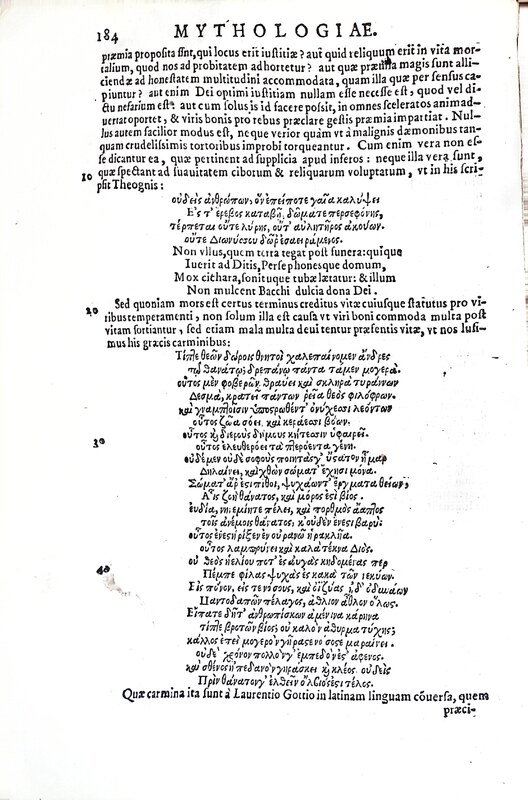 184 MYTHOLOGIAE.
præmia proposita sint, qui locus erit iustitiæ? aut quid reliquum erit in vita mor-
talium, quod nos ad probitatem adhortetur? aut quæ præmia magis sunt alli-
ciendæ ad honestatem multitudini accommodata, quam illa quæ per sensus ca-
piuntur? aut enim Dei optimi iustitiam nullam esse necesse est, quod vel di-
ctu nefarium est: aut cum solus is id facere possit, in omnes sceleratos animad-
uertat oportet, & viris bonis pro rebus præclare gestis præmia impartiat. Nul-
lus autem facilior modus est, neque verior quàm vt à malignis dæmonibus tan-
quam crudelissimis tortoribus improbi torqueantur. Cum enim vera non es-
se dicantur ea, quæ pertinent ad supplicia apud inferos: neque illa vera sunt,
10 quæ spectant ad suauitatem ciborum & reliquarum voluptatum, vt in his scri-
psit Theognis:
οὐδεὶς ἀνθρώπων, ὃν ἐπεὶ ποτε γαῖα καλύψει
Εἰς τ' ἔρεβος καταβῇ, δώματα περσεφόνης,
τέρπεται οὔτε λύρης, οὔτ' αὐλητῆρος ἀκούων.
οὔτε Διωνύσου δῶρ'
Non vllus, quem terra tegat post funera: quique
Iuerit ad Ditis, Persephonesque domum,
Mox cithara, sonituque tubæ lætatur: & illum
Non mulcent Bacchi dulcia dona Dei.
20 Sed quoniam mors est certus terminus creditus vitæ cuiusque statutus pro vi-
ribus temperamenti, non solum illa est causa vt viri boni commoda multa post
vitam sortiantur, sed etiam mala multa deuitentur præsentis vitæ, vt nos lusi-
mus his græcis carminibus:
Τίπτε θεῶν δώροις θνητοὶ χαλεπαίνομεν ἄνδρες
πῇ θανάτῳ; δρεπάνῳ πάντα τάμεν μογερά.
οὗτος μὲν φοβερῶν θραύει καὶ σκληρὰ τυράννων
Δεσμὰ, κρατεῖ πάντων ῥεῖα θεὸς φιλόφρων.
καὶ γναμπτοῖσιν λεόντων
οὗτος ζῶα καὶ βοῶν.
οὗτος καὶ διεροὺς
30 οὗτος ἐλευθεροῖ τὰ πτερόεντα γένη.
οὐδὲ μὲν οὐδὲ σοφοὺς ποιητὰς
μόνα.
Σώματ'
Ἆις ζωὴ θάνατος, καὶ μόρος ἐστὶ βίος.
εὐδία, πέλει, καὶ πορθμὸς
τοῖς ἀνέμοις θάνατος; κ' οὐδὲν ἔνεστι βαρύ:
οὗτος ἐν οὐρανῷ ἡρακλῆα.
οὗτος λαμπρύνει καὶ καλὰ τέκνα Διός.
οὐ θεὸς ἠελίου ποτ' ἐς αὐγὰς κηδομένας περ
40 Πέμπε φίλας ψυχὰς ἐς κακὰ τῶν
Εἰς πόνον, εἰς τε νόσους, καὶ
Παντοδαπῶν πέλαγος, ἄθλιον ἆθλον ὅλως.
Εἴπατε δῆτ' ἀνθρωπίσκων ἀμένηνα κάρηνα
τίπτε βροτῶν βίος; οὐ καλὸν ἄθυρμα τύχης;
κάλλος μαραίνει.
οὐδὲ χρόνον ἄφενος.
καὶ σθένος κλέος. οὐδεὶς
Πρὶν θάνατον γ' ἐλθεῖν ὄλβιός ἐστι τέλος.
Quæ carmina ita sunt à Laurentio Gottio in latinam linguam cōuersa, quem
præci-